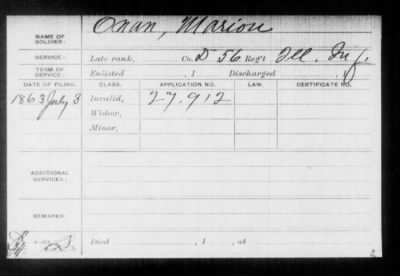 NAME OF SOLDIER: Onan, Marion
SERVICE: Late rank, Co. D 56 Reg't Ill. Inf.
TERM OF SERVICE: Enlisted , 1 Discharged , 1
DATE OF FILING. CLASS. APPLICATION NO. LAW. CERTIFICATE NO.
1863 July 3 Invalid, 27.912
Widow,
Minor,
ADDITIONAL SERVICES:
REMARKS:
Died , 1 , at